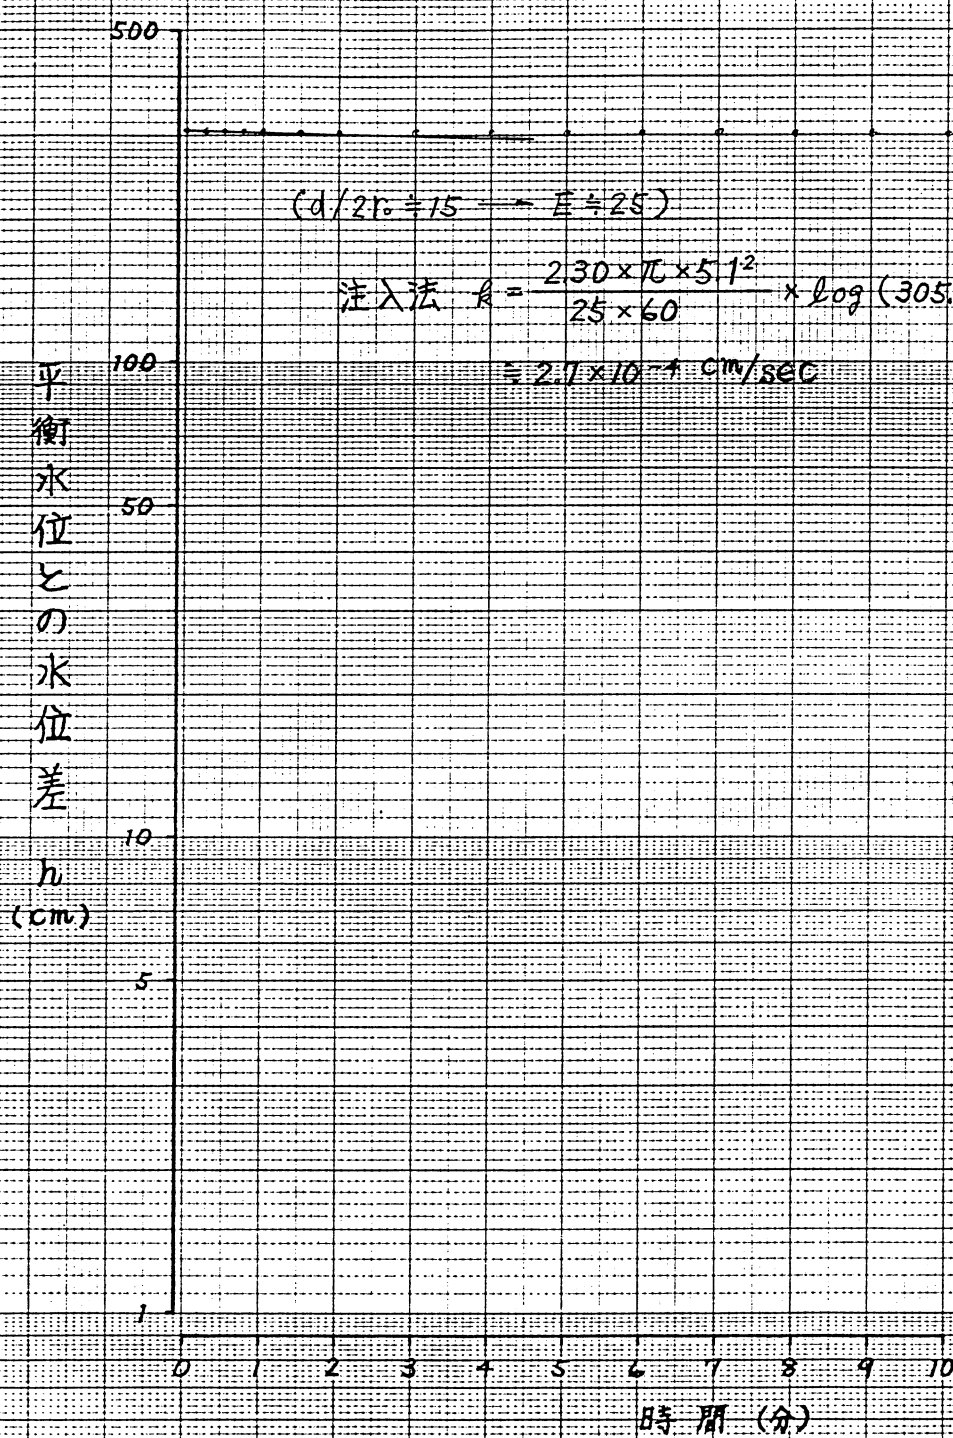 500
(d/2r₀≒15 ― E≒25)
注入法 k = 2.30×π×5.1² / 25×60 × log (305.
≒ 2.7×10⁻⁴ cm/sec
100
50
10
5
1
平衡水位との水位差 h (cm)
0 1 2 3 4 5 6 7 8 9 10
時間 (分)